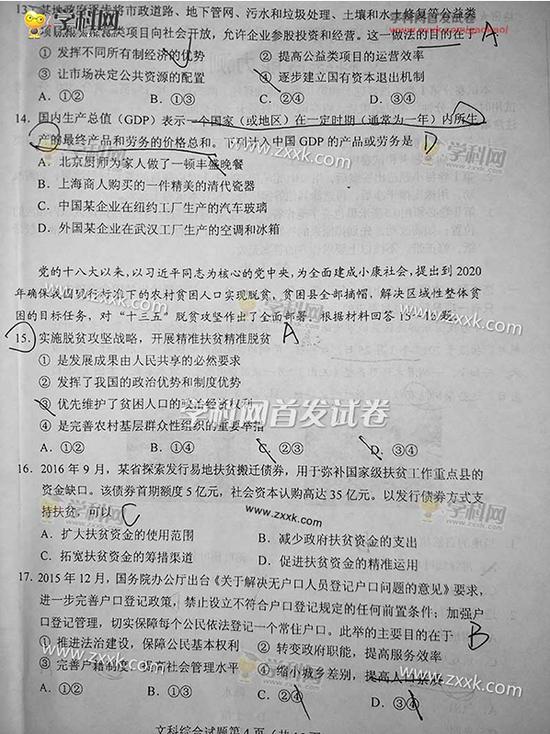 13. 某地政府逐步将市政道路、地下管网、污水和垃圾处理、土壤和水土修复等公益类
项目向社会开放，允许企业参股投资和经营。这一做法的目的在于 A
① 发挥不同所有制经济的优势 ② 提高公益类项目的运营效率
③ 让市场决定公共资源的配置 ④ 逐步建立国有资本退出机制
A. ①② B. ①③ C. ②④ D. ③④
14. 国内生产总值（GDP）表示一个国家（或地区）在一定时期（通常为一年）内所生
产的最终产品和劳务的价格总和。下列计入中国 GDP 的产品或劳务是 D
A. 北京厨师为家人做了一顿丰盛晚餐
B. 上海商人购买的一件精美的清代瓷器
C. 中国某企业在纽约工厂生产的汽车玻璃
D. 外国某企业在武汉工厂生产的空调和冰箱
党的十八大以来，以习近平同志为核心的党中央，为全面建成小康社会，提出到 2020
年确保我国现行标准下的农村贫困人口实现脱贫，贫困县全部摘帽，解决区域性整体贫
困的目标任务，对“十三五”脱贫攻坚作出了全面部署。根据材料回答 15~16 题。
15. 实施脱贫攻坚战略，开展精准扶贫精准脱贫 A
① 是发展成果由人民共享的必然要求
② 发挥了我国的政治优势和制度优势
③ 优先维护了贫困人口的经济权利
④ 是完善农村基层群众性组织的重要举措
A. ①② B. ①③ C. ②④ D. ③④
16. 2016 年 9 月，某省探索发行易地扶贫搬迁债券，用于弥补国家级扶贫工作重点县的
资金缺口。该债券首期额度 5 亿元，社会资本认购高达 35 亿元。以发行债券方式支
持扶贫，可以 C
A. 扩大扶贫资金的使用范围 B. 减少政府扶贫资金的支出
C. 拓宽扶贫资金的筹措渠道 D. 促进扶贫资金的精准运用
17. 2015 年 12 月，国务院办公厅出台《关于解决无户口人员登记户口问题的意见》要求，
进一步完善户口登记政策，禁止设立不符合户口登记规定的任何前置条件；加强户
口登记管理，切实保障每个公民依法登记一个常住户口。此举的主要目的在于 B
① 推进法治建设，保障公民基本权利 ② 转变政府职能，提高服务效率
③ 完善户籍制度，提高社会管理水平 ④ 缩小城乡差别，提高人口素质
A. ①② B. ①③ C. ②④ D. ③④
文科综合试题第 4 页
学科网首发试卷
学科网
www.zxxk.com